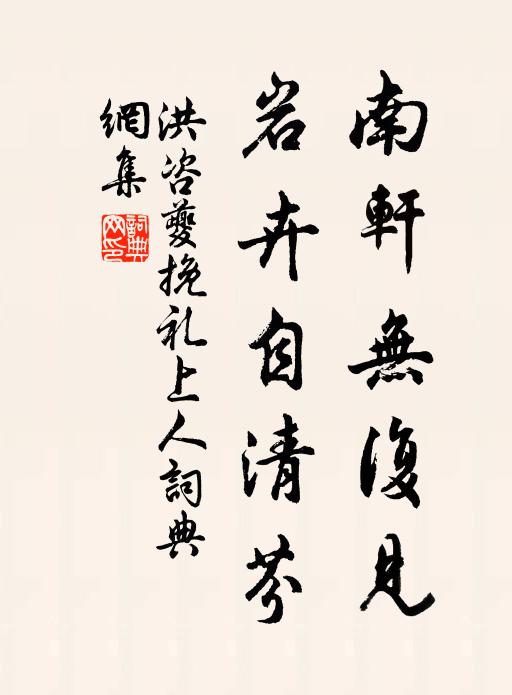 南軒無復見
岩卉自清芬
洪咨夔挽礼上人詞典
網集
詞典
网印